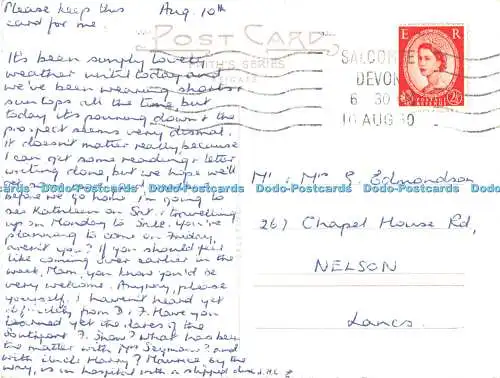 Please keep this Aug 10th
card for me.
POST CARD
SMITH'S SERIES
E R
SALCOMBE
DEVON
6 30
10 AUG
It's been simply lovely
weather until today and
we've been wearing shorts &
suntops all the time but
today it's pouring down & the
prospect seems very dismal.
It doesn't matter really, because
I can get some reading & letter
writing done, but we hope we'll
get
before we go home. I'm going to
see Kathleen on Sat. & travelling
up on Monday to Stke. You're
planning to come on Friday,
aren't you? If you should feel
like coming over earlier in the
week, Mam, you know you'd be
very welcome. Anyway, please
yourself. I haven't heard yet
definitely from D. & F. Have you
learned yet the dates of the
Southport F. Show? What has been
the matter with Mrs Seymour? and
with Uncle Harry? Maurice by the
way, is in hospital with a slipped disc.
Mr & Mrs E. Edmondson
267 Chapel House Rd,
NELSON
Lancs.
Dodo-Postcards Dodo-Postcards Dodo-Postcards Dodo-Postcards Dodo-Postcards